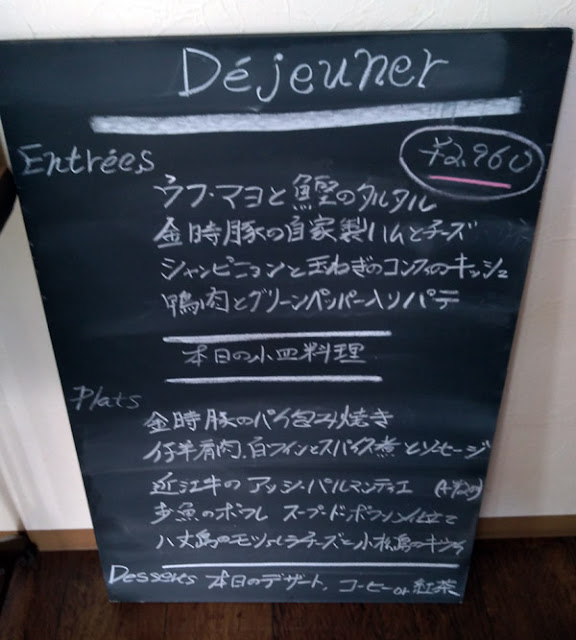 Déjeuner
¥2,960
Entrées
ウフ・マヨと鰹のタルタル
金時豚の自家製ハムとチーズ
シャンピニョンと玉ねぎのコンフィのキッシュ
鴨肉とグリーンペッパー入りパテ
本日の小皿料理
Plats
金時豚のパイ包み焼き
仔羊肩肉、白ワインとスパイス煮とソーセージ
近江牛のアッシ・パルマンティエ
魚のポワレ スープ・ド・ポワソン仕立て
八丈島のモツァレラチーズと小松島の
Desserts 本日のデザート、コーヒー or 紅茶